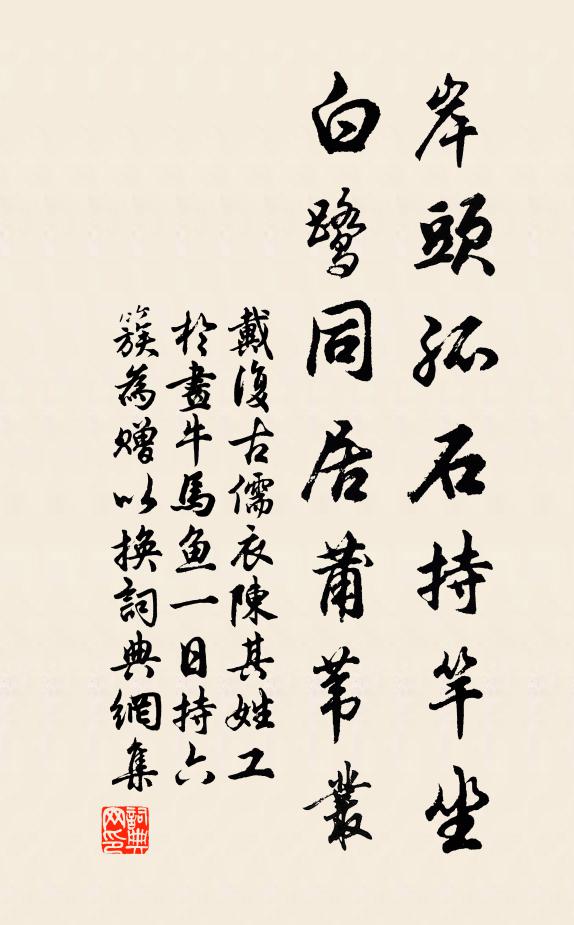 岸頭孤石持竿坐
白鷺同居蒲苇叢
戴復古儒衣陳其姓工
於畫牛馬魚一日持六
簇為贈以换詞典網集
詞典网印